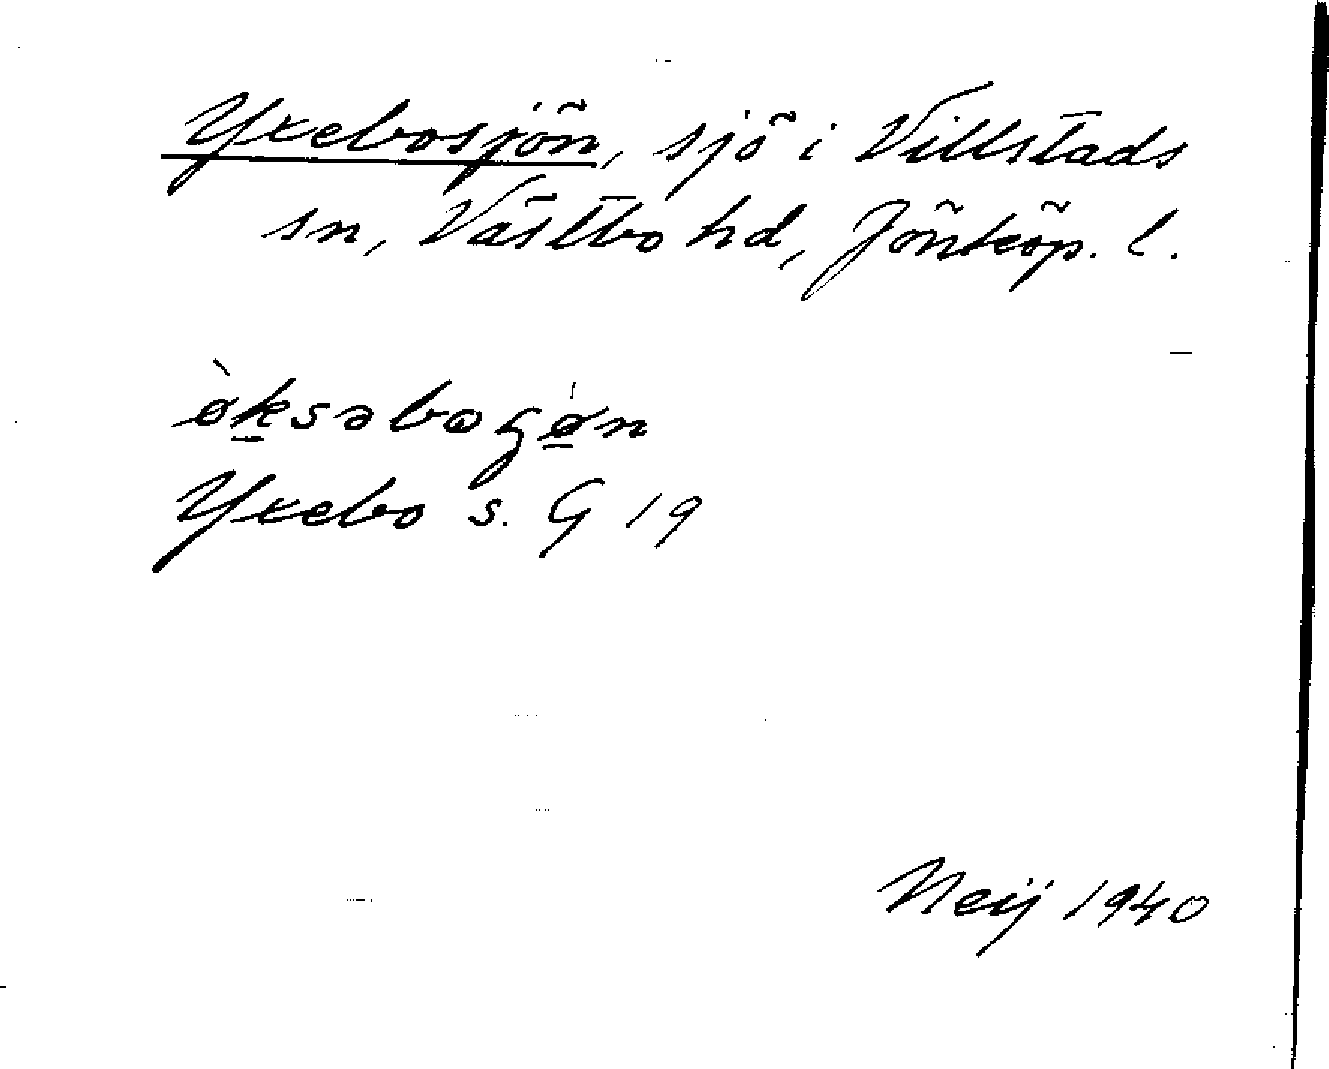 Yxebosjön, sjö i Villstads
sn, Västbo hd, Jönköp. l.
øksəboʒøn
Yxebo s. G 19
Neij 1940